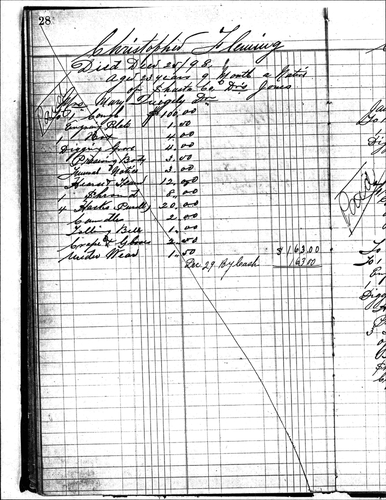 28
Christopher Fleming
Died Dec 25/98
Aged 23 years 9 Month a Native
of Shasta Co Drs Jones
Paid
Mrs Mary Dr
To 1 Couch $100.00
Engrav Plate 1.50
Box 4.00
Digging Grave 4.00
Preserving Body 3.50
Funeral Notice 3.00
Hearse & Team 12.00
1 Shroud
4 Hacks 20.00
Candles 2.00
Tolling Bell 1.00
Crape & Gloves 2.50
Under Wear 1.50 $163.00
Dec 29 By Cash 163.00
Paid